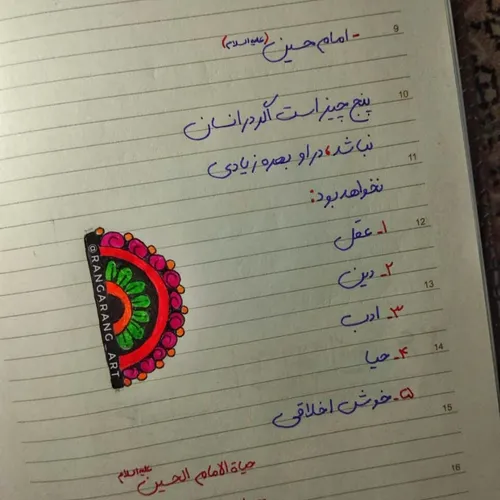 9
- امام حسین (علیه السلام)
10
پنج چیز است اگر در انسان
نباشد، در او بهره زیادی
11
نخواهد بود:
12
۱- عقل
۲- دین
13
۳- ادب
۴- حیا
14
۵- خوش اخلاقی
15
حیاة الامام الحسین علیه السلام
16
@RANGARANG_ART